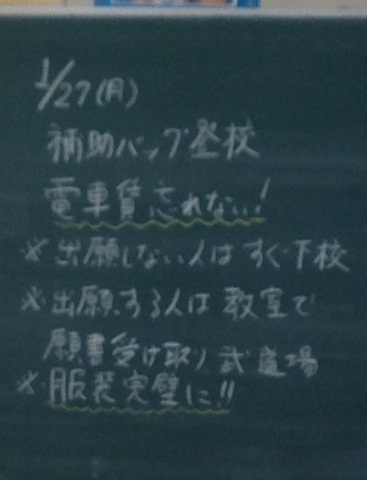 1/27(月)
補助バッグ登校
電車賃忘れない!
※出願しない人はすぐ下校
※出願する人は教室で
願書受け取り武道場
※服装完璧に!!